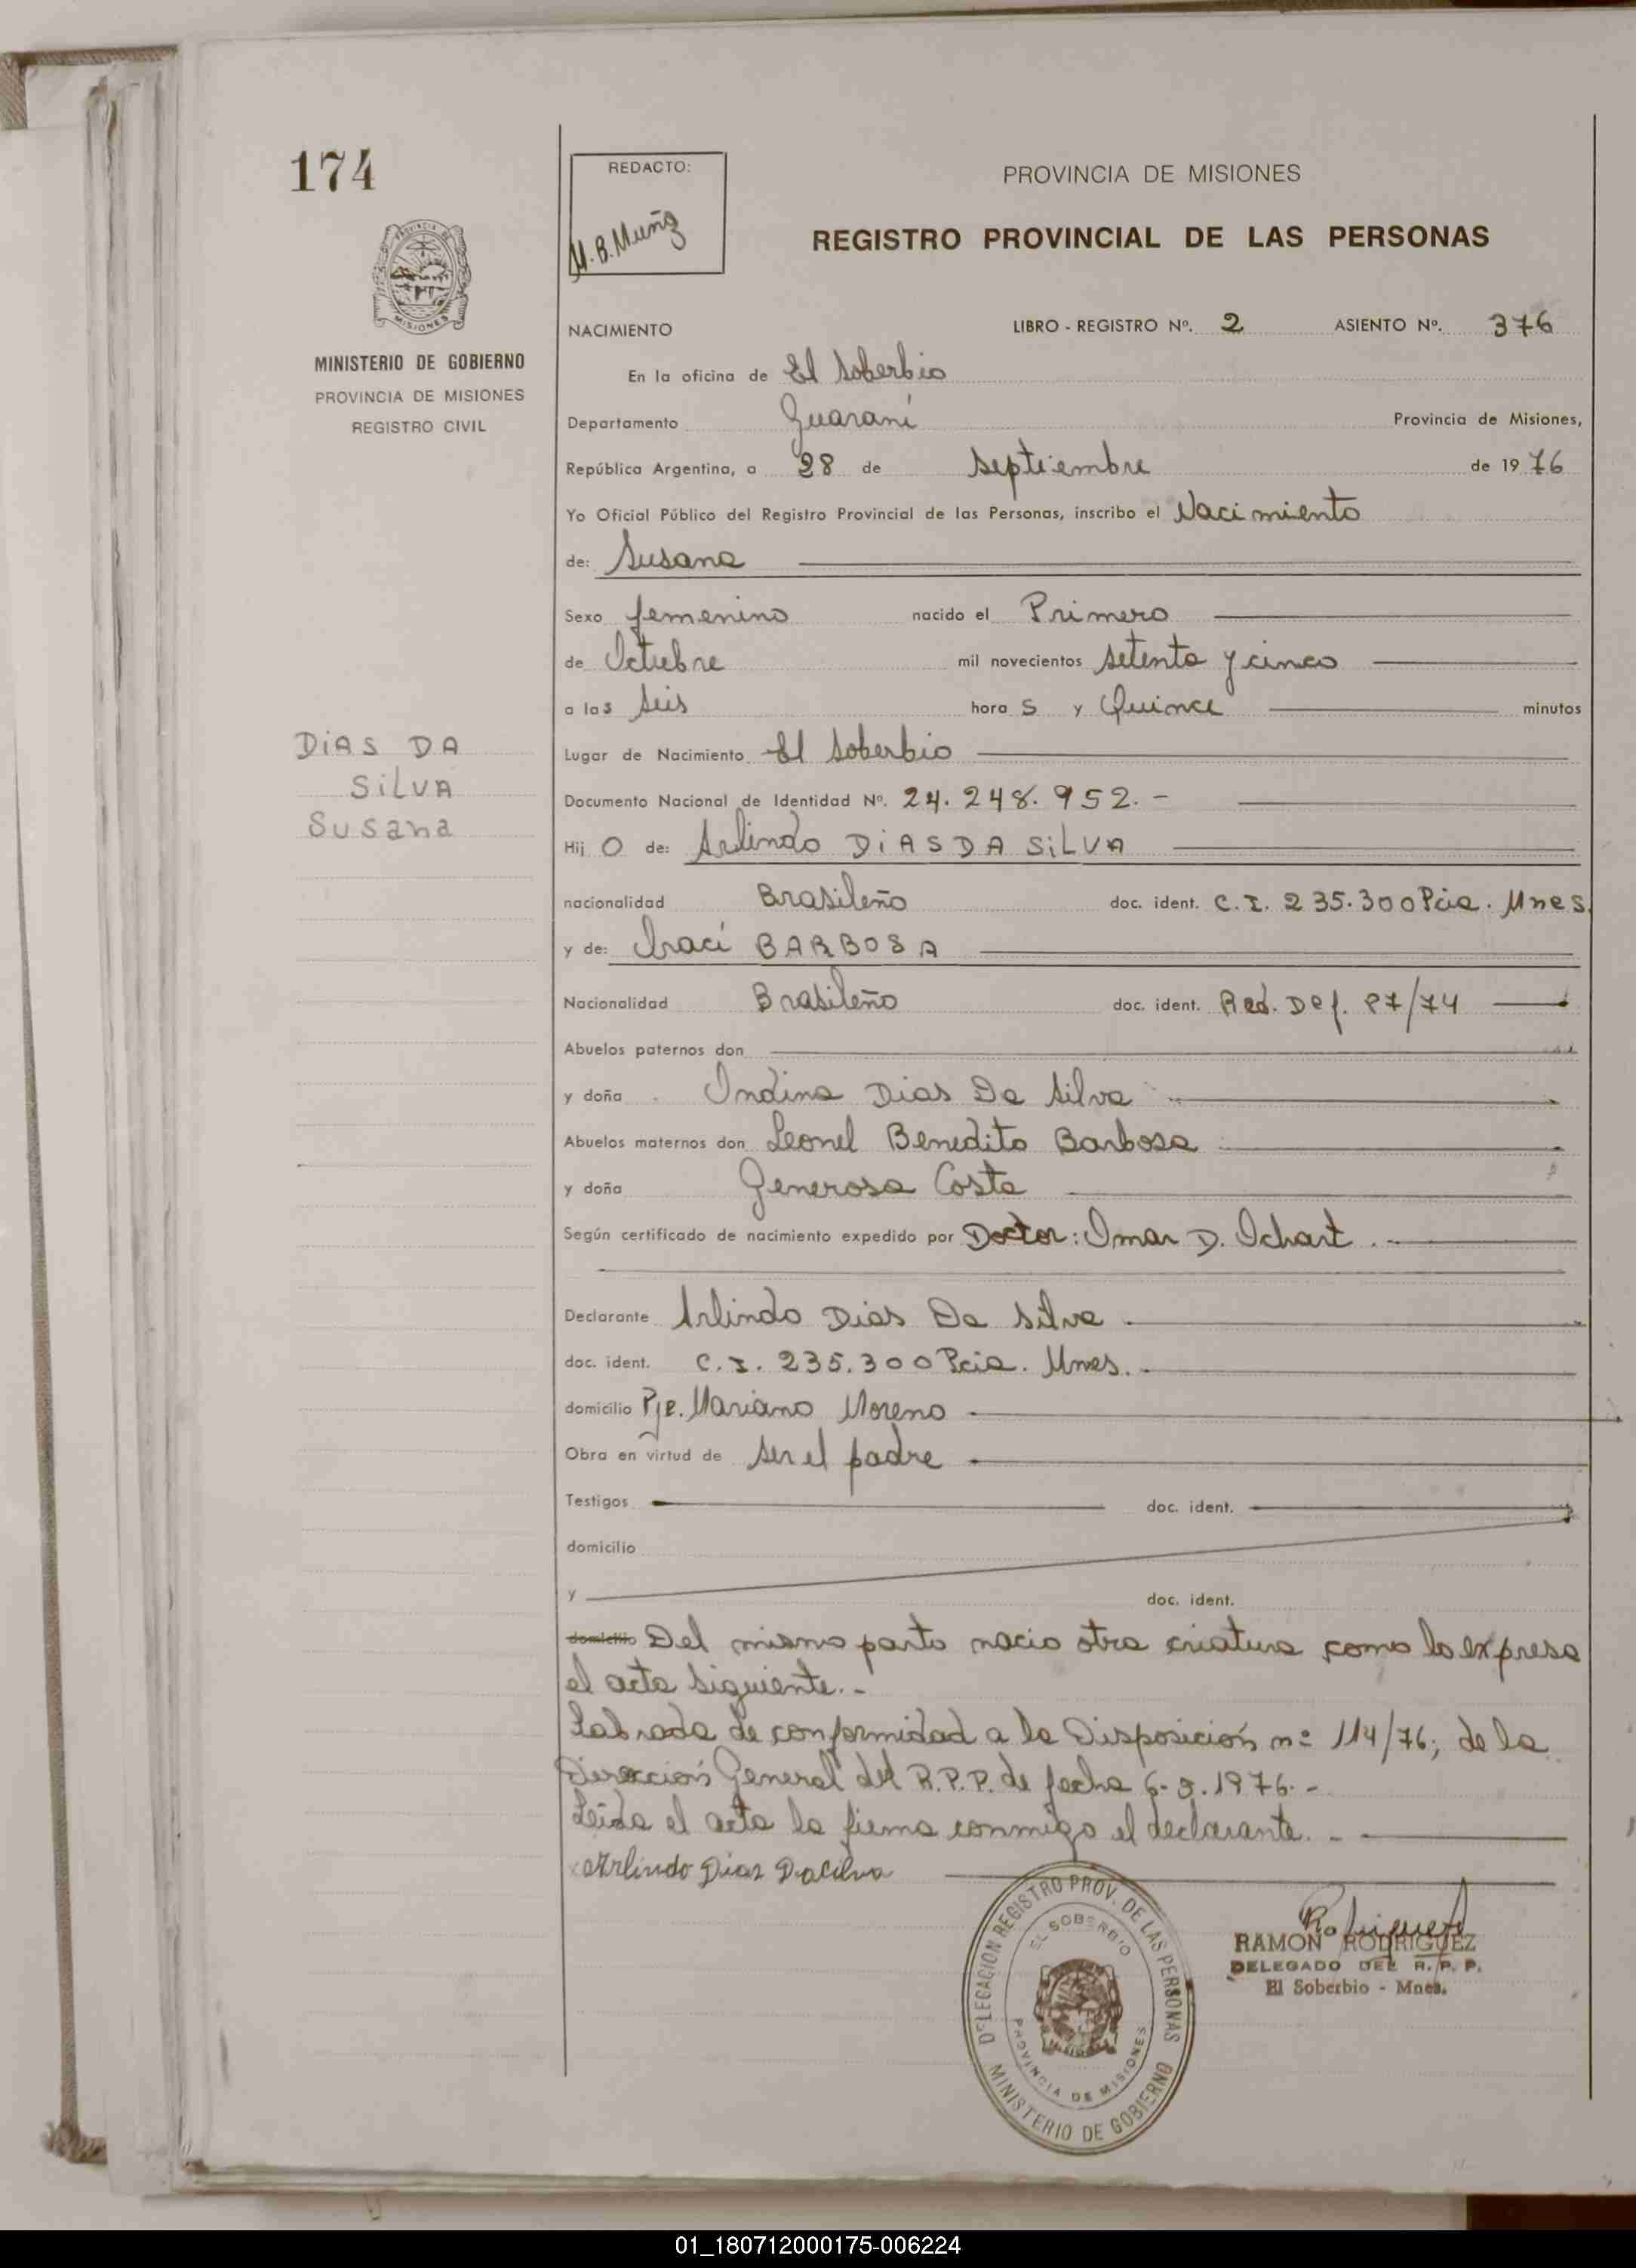 174
REDACTO:
M.B. Muñoz
PROVINCIA DE MISIONES
REGISTRO PROVINCIAL DE LAS PERSONAS
MISIONES
MINISTERIO DE GOBIERNO
PROVINCIA DE MISIONES
REGISTRO CIVIL
NACIMIENTO LIBRO - REGISTRO Nº. 2 ASIENTO Nº. 376
En la oficina de El Soberbio
Departamento Guaraní Provincia de Misiones,
República Argentina, a 28 de Septiembre de 1976
Yo Oficial Público del Registro Provincial de las Personas, inscribo el Nacimiento
de: Susana
Sexo femenino nacido el Primero
de Octubre mil novecientos setenta y cinco
a las seis horas y Quince minutos
DiAS DA
SiLVA
Susana
Lugar de Nacimiento El Soberbio
Documento Nacional de Identidad Nº. 24.248.952.-
Hij O de: Arlindo DiAS DA SiLVA
nacionalidad Brasileño doc. ident. C.I. 235.300 Pcia. Mnes.
y de: Iraci BARBOSA
Nacionalidad Brasileño doc. ident. Rad. Def. 87/74
Abuelos paternos don
y doña Ondina Dias Da Silva
Abuelos maternos don Leonel Benedito Barbosa
y doña Generosa Costa
Según certificado de nacimiento expedido por Doctor: Omar D. Ichart.-
Declarante Arlindo Dias Da Silva.
doc. ident. C.I. 235.300 Pcia. Mnes.-
domicilio Pje. Mariano Moreno
Obra en virtud de ser el padre
Testigos doc. ident.
domicilio
y doc. ident.
domicilio Del mismo parto nacio otra criatura como lo expresa
el acta siguiente.-
Labrada de conformidad a la Disposición nº 114/76; de la
Dirección General del R.P.P. de fecha 6-9.1976.-
Leída el acta la firma conmigo el declarante.-
Arlindo Dias Dasilva
DELEGACION REGISTRO PROV. DE LAS PERSONAS
EL SOBERBIO
PROVINCIA DE MISIONES
MINISTERIO DE GOBIERNO
Rodriguez
RAMON RODRIGUEZ
DELEGADO DEL R. P. P.
El Soberbio - Mnes.
01_180712000175-006224